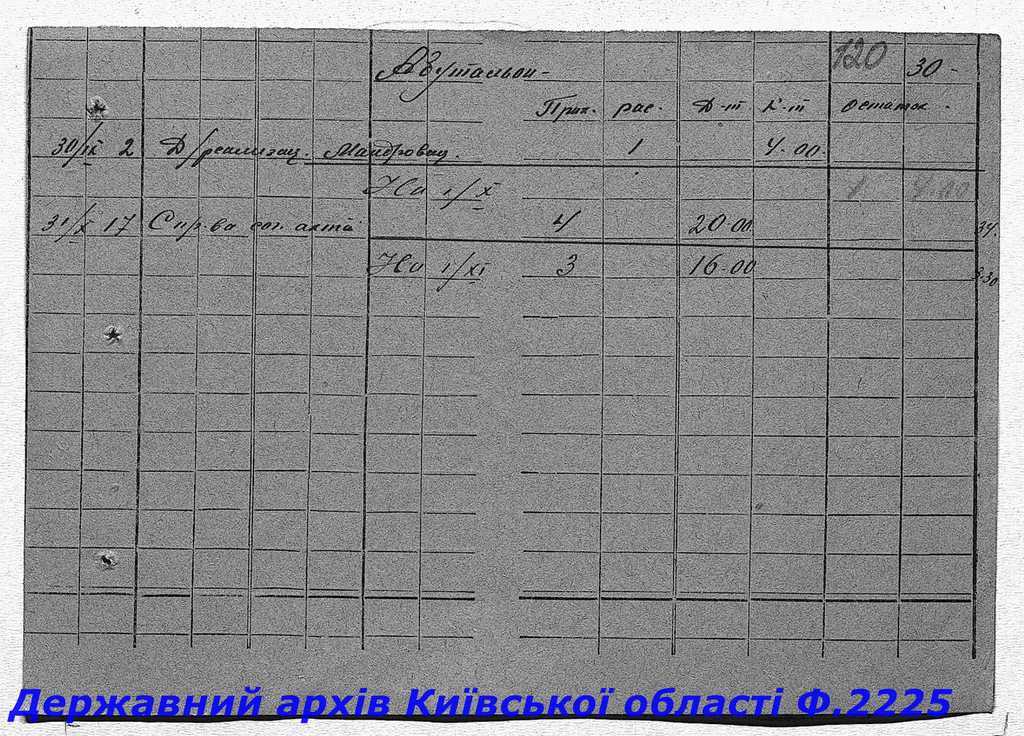 120
30 -
Прих. рас. Д-т К-т остаток.
30/IX 2 Д/реализац. 1 4-00
На 1/X 1 4.00
31/X 17 4 20-00 34.
На 1/XI 3 16-00
Державний архів Київської області Ф.2225